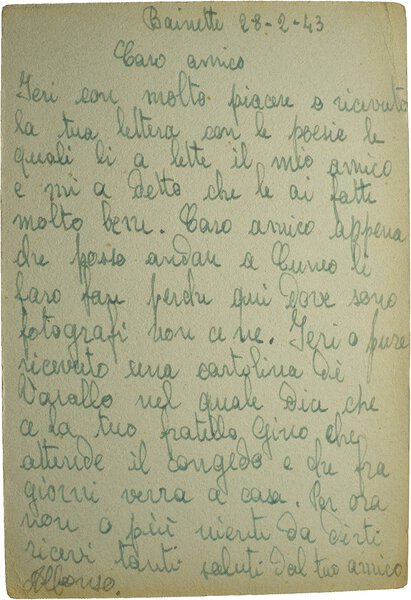 Bainette 28-2-43
Caro amico
Ieri con molto piacere o ricevuto
la tua lettera con le poesie le
quali li a lette il mio amico
e mi a detto che le ai fatti
molto bene. Caro amico appena
che posso andare a Cuneo li
faro fare perche qui dove sono
fotografi non ce ne. Ieri o pure
ricevuto una cartolina di
Varallo nel quale dice che
ce la tuo fratello Gino che
attende il congedo e che fra
giorni verra a casa. Per ora
non o più niente da dirti
ricevi tanti saluti dal tuo amico
Alfonso.